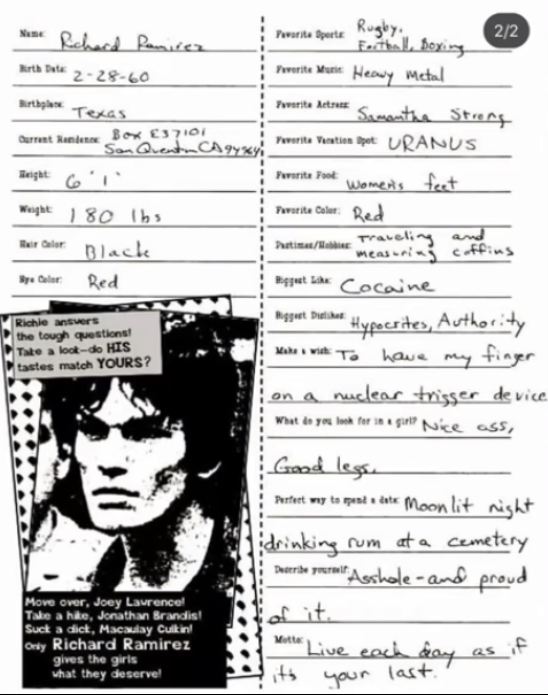 2/2
Name: Richard Ramirez
Birth Date: 2-28-60
Birthplace: Texas
Current Residence: Box E37101
San Quentin CA 94964
Height: 6'1"
Weight: 180 lbs
Hair Color: Black
Eye Color: Red
Richie answers
the tough questions!
Take a look—do HIS
tastes match YOURS?
Move over, Joey Lawrence!
Take a hike, Jonathan Brandis!
Suck a dick, Macaulay Culkin!
Only Richard Ramirez
gives the girls
what they deserve!
Favorite Sports: Rugby,
Football, Boxing
Favorite Music: Heavy Metal
Favorite Actress: Samantha Strong
Favorite Vacation Spot: URANUS
Favorite Food: Women's feet
Favorite Color: Red
Pastimes/Hobbies: Traveling and
measuring coffins
Biggest Like: Cocaine
Biggest Dislikes: Hypocrites, Authority
Make a wish: To have my finger
on a nuclear trigger device
What do you look for in a girl? Nice ass,
Good legs.
Perfect way to spend a date: Moonlit night
drinking rum at a cemetery
Describe yourself: Asshole - and proud
of it.
Motto: Live each day as if
it's your last.